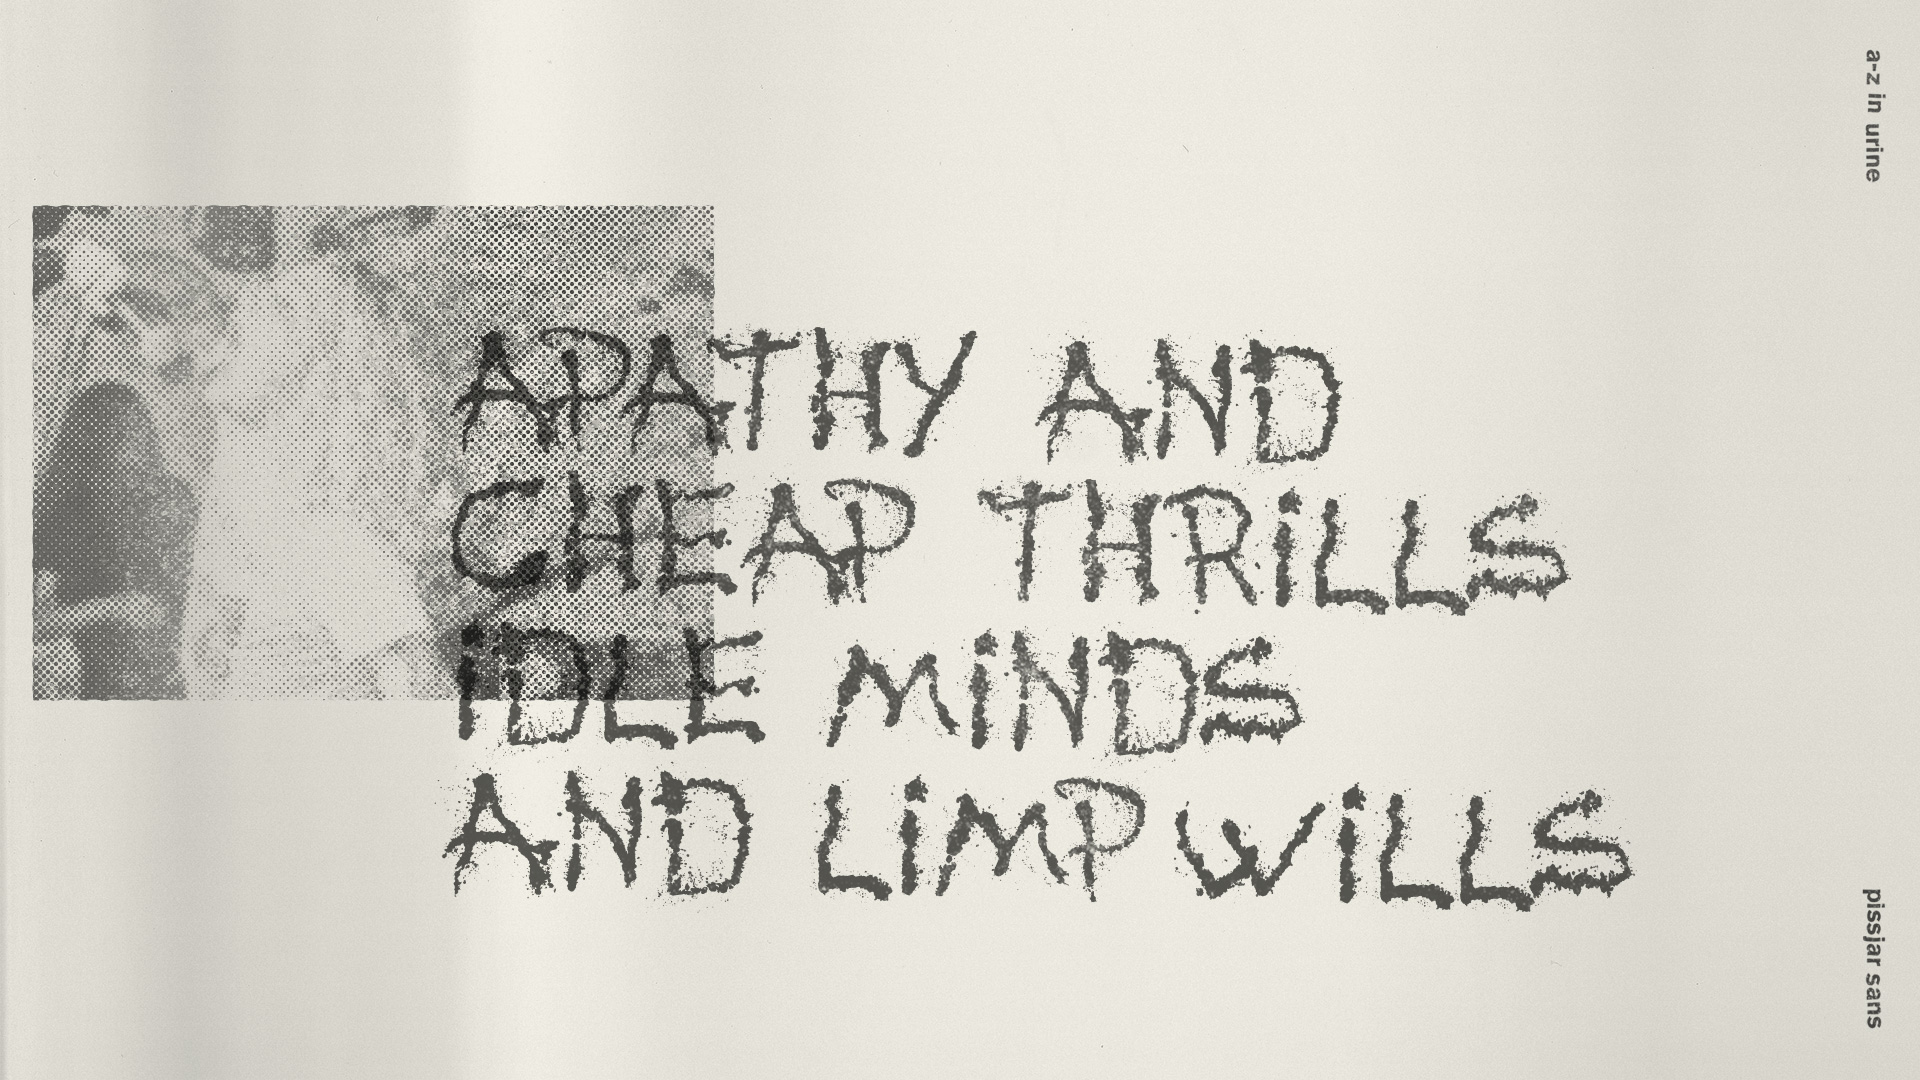 APATHY AND
CHEAP THRiLLS
iDLE MiNDS
AND LiMP WiLLS
a-z in urine
pissjar sans